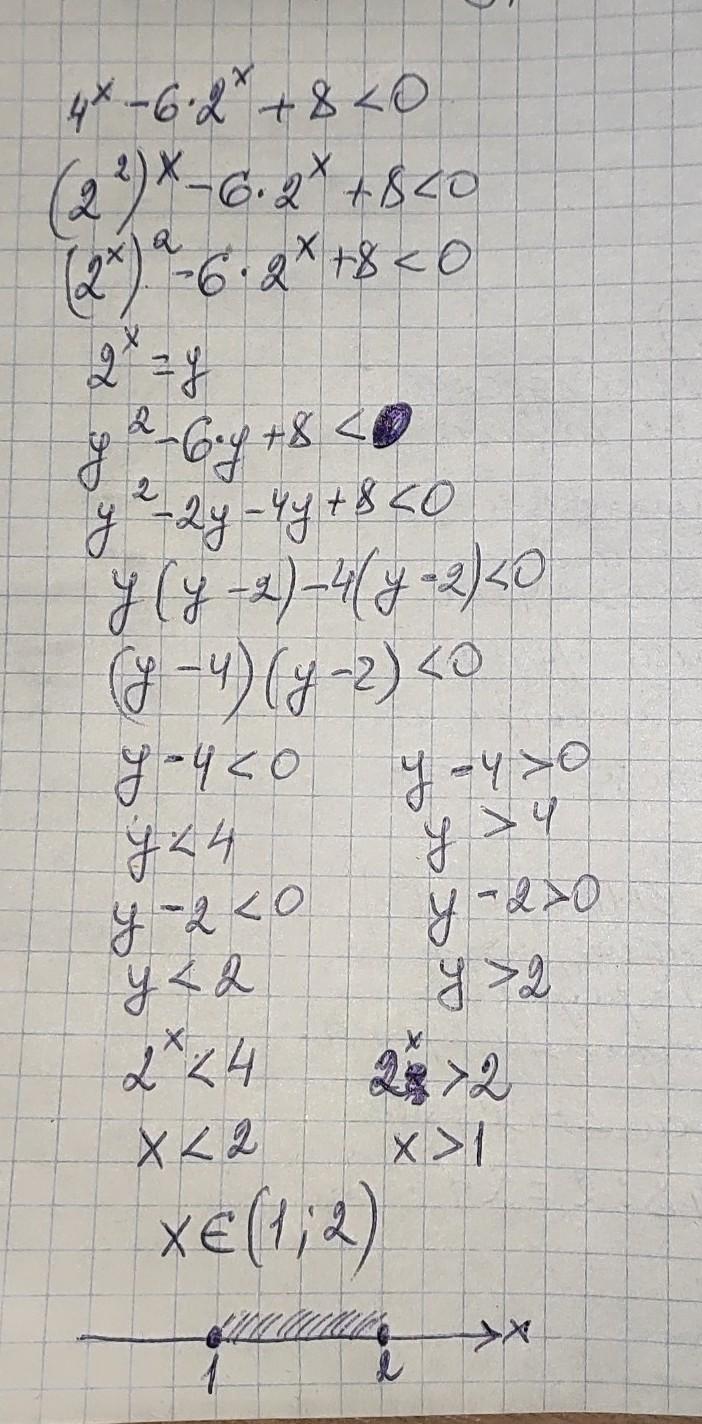 4^x - 6·2^x + 8 < 0
(2^2)^x - 6·2^x + 8 < 0
(2^x)^2 - 6·2^x + 8 < 0
2^x = y
y^2 - 6·y + 8 < 0
y^2 - 2y - 4y + 8 < 0
y(y - 2) - 4(y - 2) < 0
(y - 4)(y - 2) < 0
y - 4 < 0 y - 4 > 0
y < 4 y > 4
y - 2 < 0 y - 2 > 0
y < 2 y > 2
2^x < 4 2^x > 2
x < 2 x > 1
x ∈ (1; 2)
x
1 2